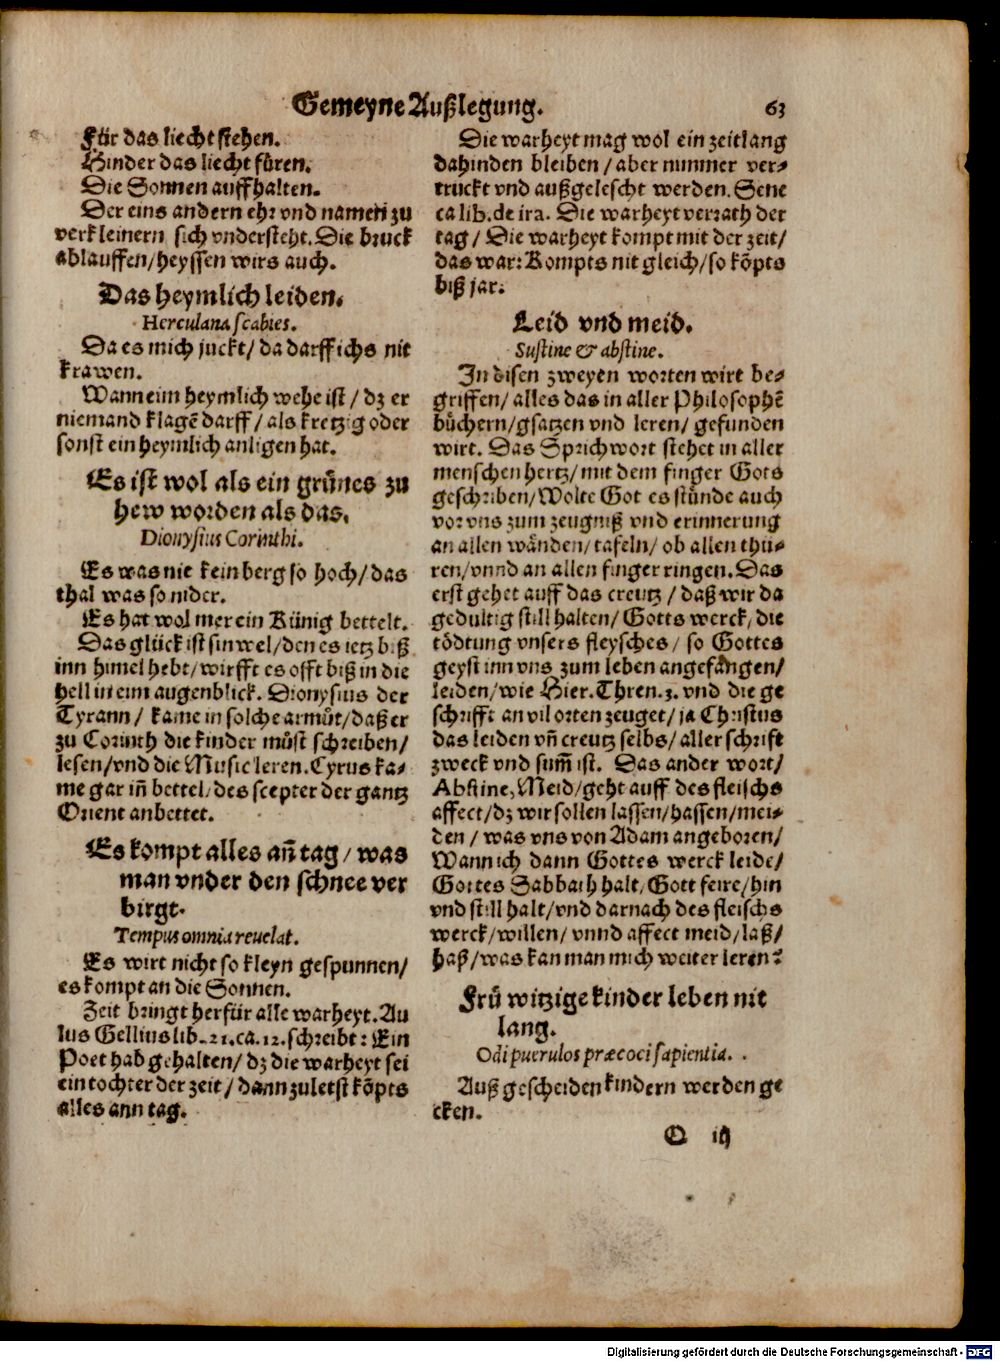 Gemeyne Außlegung. 63
Für das liecht stehen.
Hinder das liecht füren.
Die Sonnen auffhalten.
Der eins andern ehr vnd namen zu
verkleinern sich vndersteht. Die bruck
ablauffen/heyssen wirs auch.
Das heymlich leiden.
Herculana scabies.
Da es mich juckt/ da darff ichs nit
krawen.
Wann eim heymlich wehe ist/ dz er
niemand klagẽ darff/ als kretzig oder
sonst ein heymlich anligen hat.
Es ist wol als ein grůnes zu
hew worden als das.
Dionysius Corinthi.
Es was nie kein berg so hoch/das
thal was so nider.
Es hat wol mer ein Künig bettelt.
Das glück ist sinwel/den es ietz biß
inn himel hebt/wirfft es offt biß in die
hell in eim augenblick. Dionysius der
Tyrann/ kame in solche armůt/daß er
zu Corinth die kinder můst schreiben/
lesen/vnd die Music leren. Cyrus ka-
me gar iñ bettel/des scepter der gantz
Orient anbettet.
Es kompt alles añ tag/ was
man vnder den schnee ver
birgt.
Tempus omnia reuelat.
Es wirt nicht so kleyn gespunnen/
es kompt an die Sonnen.
Zeit bringt herfür alle warheyt. Au
lus Gellius lib. 21. ca. 12. schreibt: Ein
Poet hab gehalten/ dz die warheyt sei
ein tochter der zeit/ dann zuletst kõpts
alles ann tag.
Die warheyt mag wol ein zeitlang
dahinden bleiben/ aber nimmer ver-
truckt vnd außgelescht werden. Sene
ca lib. de ira. Die warheyt verrath der
tag/ Die warheyt kompt mit der zeit/
das war: Kompts nit gleich/so kõpts
biß jar.
Leid vnd meid.
Sustine & abstine.
In disen zweyen worten wirt be-
griffen/ alles das in aller Philosophẽ
bůchern/gsatzen vnd leren/ gefunden
wirt. Das Sprichwort stehet in aller
menschen hertz/ mit dem finger Gots
geschriben/Wolte Got es stůnde auch
vor vns zum zeugniß vnd erinnerung
an allen wänden/ tafeln/ ob allen thü-
ren/vnnd an allen finger ringen. Das
erst gehet auff das creutz/ daß wir da
gedultig still halten/ Gotts werck/ die
tödtung vnsers fleysches/ so Gottes
geyst inn vns zum leben angefangen/
leiden/wie Hier. Thren. 3. vnd die ge
schrifft an vil orten zeuget/ ja Christus
das leiden vñ creutz selbs/ aller schrift
zweck vnd sum̃ ist. Das ander wort/
Abstine, Meid/geht auff des fleischs
affect/dz wir sollen lassen/hassen/mei-
den/ was vns von Adam angeboren/
Wann ich dann Gottes werck leide/
Gottes Sabbath halt/ Gott feire/hin
vnd still halt/vnd darnach des fleischs
werck/willen/ vnnd affect meid/laß/
haß/was kan man mich weiter leren?
Frů witzige kinder leben nit
lang.
Odi puerulos præcoci sapientia.
Auß gescheiden kindern werden ge
cken.
Q iij
Digitalisierung gefördert durch die Deutsche Forschungsgemeinschaft - DFG